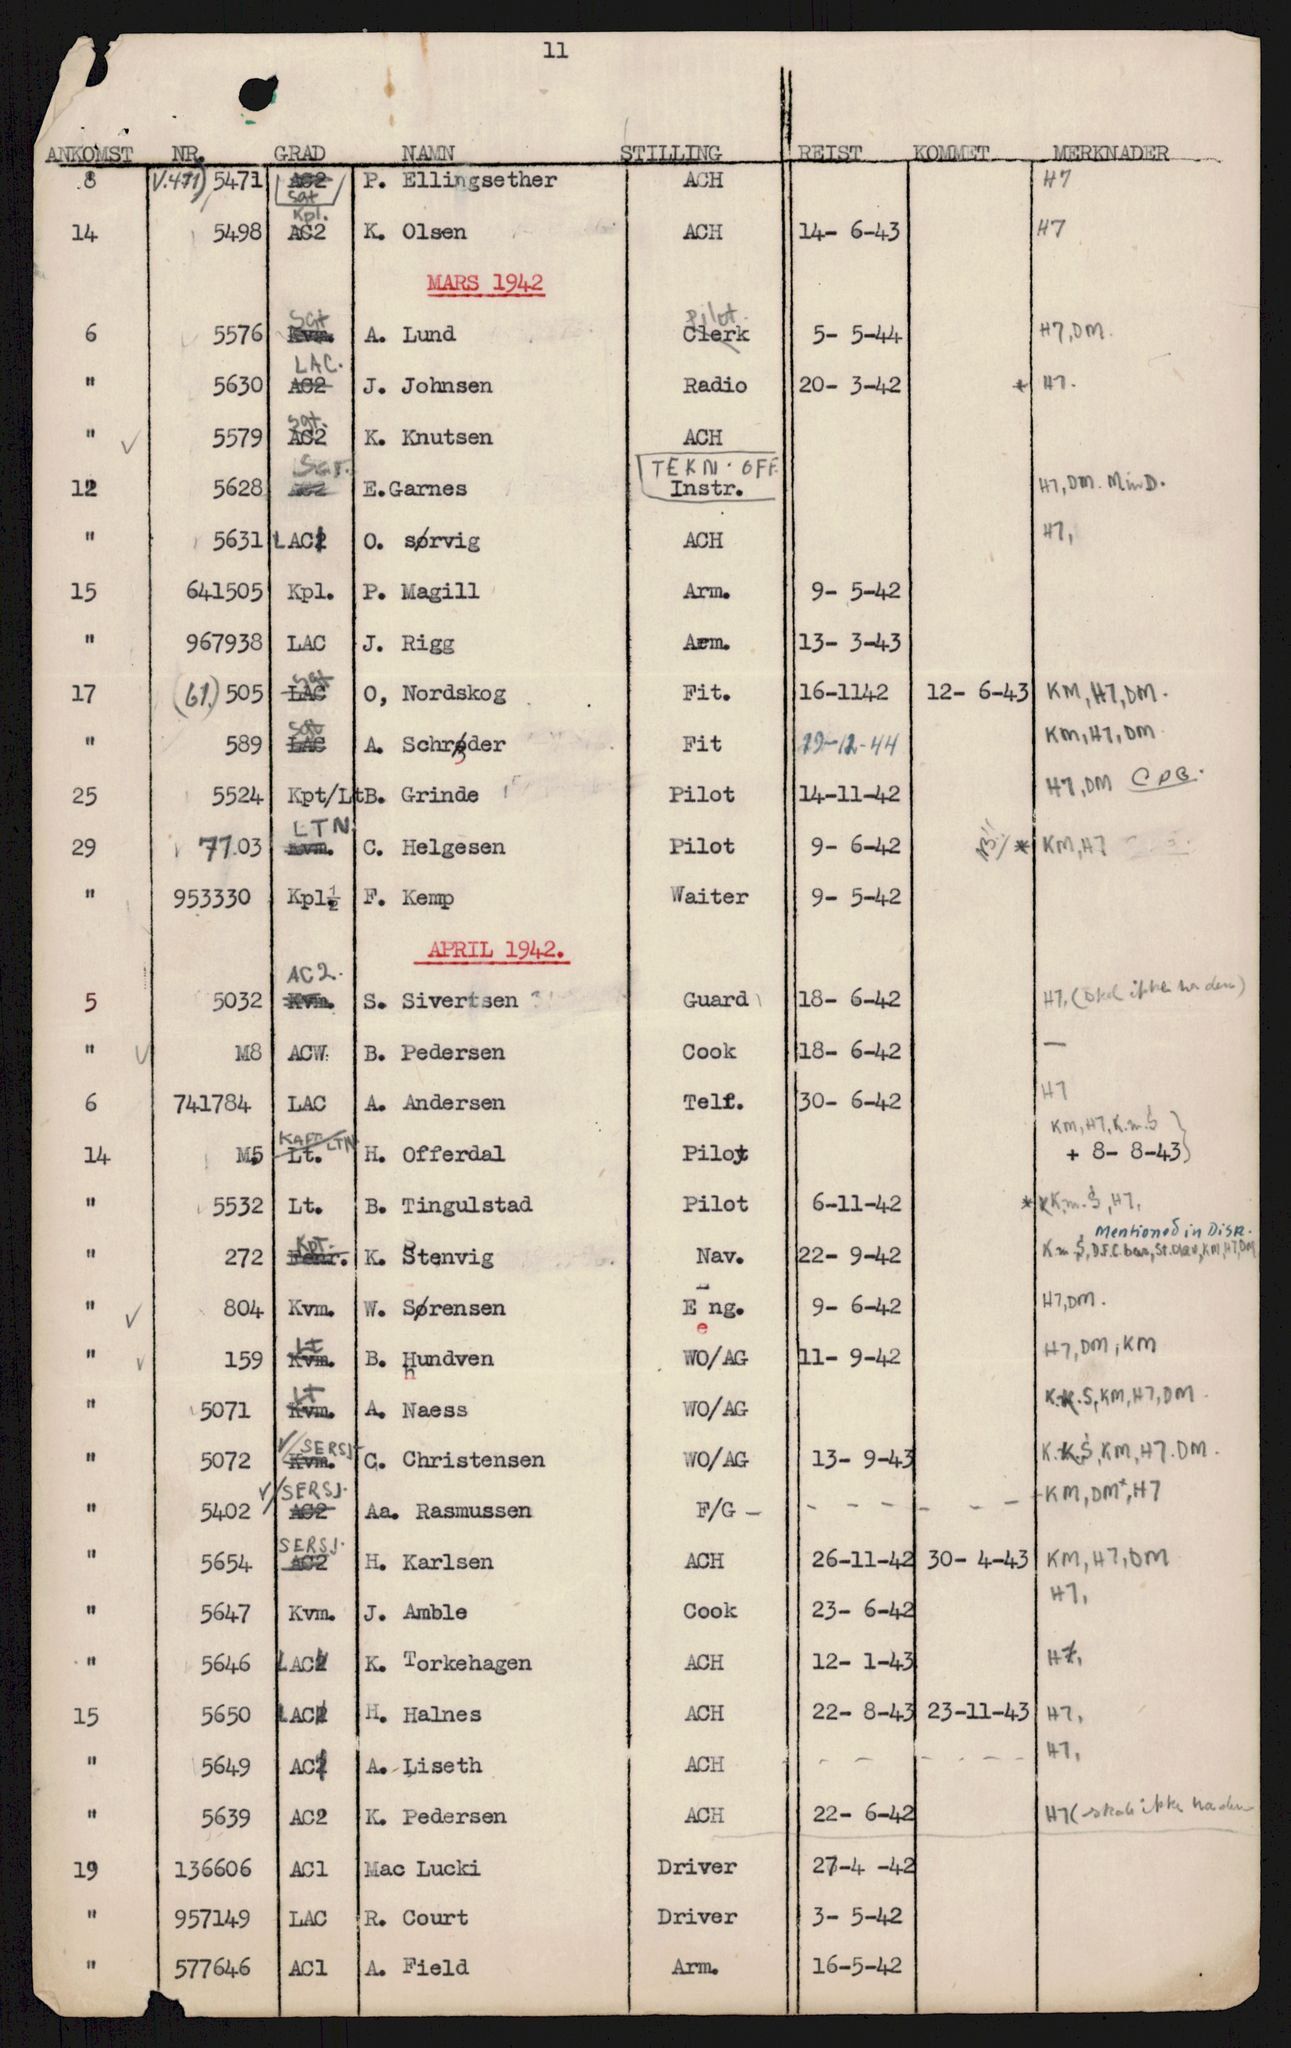 11
ANKOMST NR. GRAD NAMN STILLING REIST KOMMET MERKNADER
8 (V.471) 5471 AC2 Sgt P. Ellingsether ACH H7
14 5498 AC2 Kpl. K. Olsen ACH 14- 6-43 H7
MARS 1942
6 5576 Kvm. Sgt A. Lund Clerk Pilot. 5- 5-44 H7, DM.
" 5630 AC2 LAC. J. Johnsen Radio 20- 3-42 * H7.
" 5579 AC2 Sgt. K. Knutsen ACH
12 5628 AC2 Sgt. E.Garnes TEKN. OFF. Instr. H7, DM. MinD.
" 5631 LAC O. sørvig ACH H7,
15 641505 Kpl. P. Magill Arm. 9- 5-42
" 967938 LAC J. Rigg Arm. 13- 3-43
17 (61.) 505 LAC Sgt O, Nordskog Fit. 16-1142 12- 6-43 KM, H7, DM.
" 589 LAC Sgt A. Schrøder Fit 29-12-44 KM, H7, DM
25 5524 Kpt/Lt B. Grinde Pilot 14-11-42 H7, DM
29 7703 Kvm. LTN C. Helgesen Pilot 9- 6-42 * KM, H7
" 953330 Kpl. ½ F. Kemp Waiter 9- 5-42
APRIL 1942.
5 5032 Kvm. AC2. S. Sivertsen Guard 18- 6-42 H7, (skal ikke ha den)
" M8 ACW. B. Pedersen Cook 18- 6-42 —
6 741784 LAC A. Andersen Telf. 30- 6-42 H7
14 M5 Lt. KAPT. LTN H. Offerdal Pilot KM, H7, K.m.S
+ 8- 8-43)
" 5532 Lt. B. Tingulstad Pilot 6-11-42 * K.m.S, H7,
" 272 Fenr. Kpt. K. Stenvig Nav. 22- 9-42 Mentioned in Disk.
K.m.S, D.F.C. St.Olav, KM, H7, DM
" 804 Kvm. W. Sørensen Eng. 9- 6-42 H7, DM.
e
" 159 Kvm. Lt B. Hundven WO/AG 11- 9-42 H7, DM, KM
h
" 5071 Kvm. Lt A. Naess WO/AG K.K.S, KM, H7, DM.
" 5072 Kvm. V/SERSJ C. Christensen WO/AG 13- 9-43 K.K.S, KM, H7. DM.
" 5402 AC2 V/SERSJ. Aa. Rasmussen F/G - - - - - - - KM, DM+, H7
" 5654 AC2 SERSJ. H. Karlsen ACH 26-11-42 30- 4-43 KM, H7, DM
" 5647 Kvm. J. Amble Cook 23- 6-42 H7,
" 5646 LAC K. Torkehagen ACH 12- 1-43 H7,
15 5650 LAC H. Halnes ACH 22- 8-43 23-11-43 H7,
" 5649 AC1 A. Liseth ACH - - - - - - H7,
" 5639 AC2 K. Pedersen ACH 22- 6-42 H7 (skal ikke ha den
19 136606 AC1 Mac Lucki Driver 27-4 -42
" 957149 LAC R. Court Driver 3- 5-42
" 577646 AC1 A. Field Arm. 16-5-42